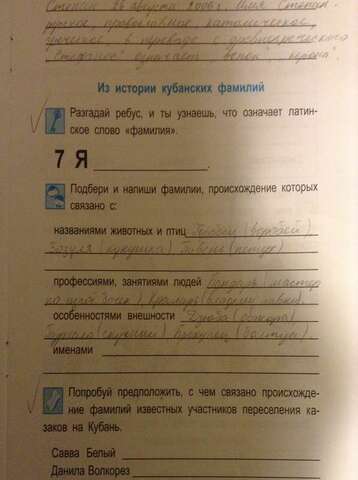 Степан 26 августа 2006 г. Имя Степан
русское, православное, католическое,
греческое в переводе с древнегреческого
"Стефанос" означает венок", корона".
Из истории кубанских фамилий
Разгадай ребус, и ты узнаешь, что означает латин-
ское слово «фамилия».
7 Я
Подбери и напиши фамилии, происхождение которых
связано с:
названиями животных и птиц (воробей)
Зозуля (кукушка) Пивень (петух)
профессиями, занятиями людей Бондарь (мастер
Крамарь (владелец лавки)
особенностями внешности Дзюба
именами
Попробуй предположить, с чем связано происхожде-
ние фамилий известных участников переселения ка-
заков на Кубань.
Савва Белый
Данила Волкорез